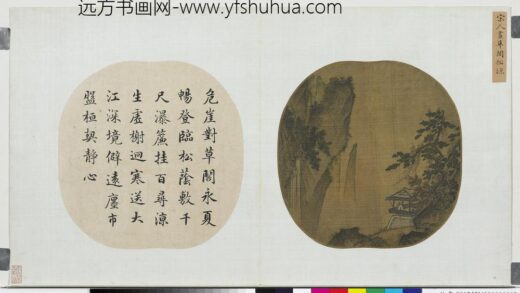 远方书画网-www.yfshuhua.com
宋人畫草閣松涼
危崖對草閣永夏
暢登臨松蔭敷千
尺瀑簾挂百尋涼
生虛榭迴寒送大
江深境僻遠塵市
盤桓契静心